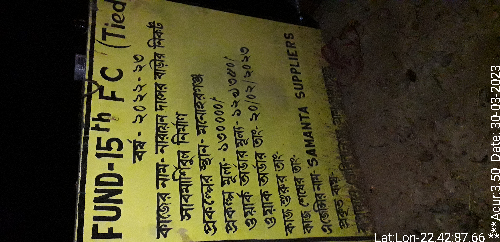 FUND-15th F C (Tied
বর্ষ - ২০২২-২৩
কাজের নাম- নারায়ন দাসের বাড়ীর নিকট
সাবমার্সিবল নির্মাণ
প্রকল্পের স্থান- মনোহরগঞ্জ
প্রকল্প মূল্য- ১৩০০০০/
ওয়ার্ক অর্ডার মূল্য-
ওয়ার্ক অর্ডার তাং- ২০/০২/২০২৩
কাজ শুরুর তাং:
কাজ শেষের তাং:
এজেন্সির নাম- SAMANTA SUPPLIERS
Lat:Lon- 22.42:87.66
Date 30-03-2023